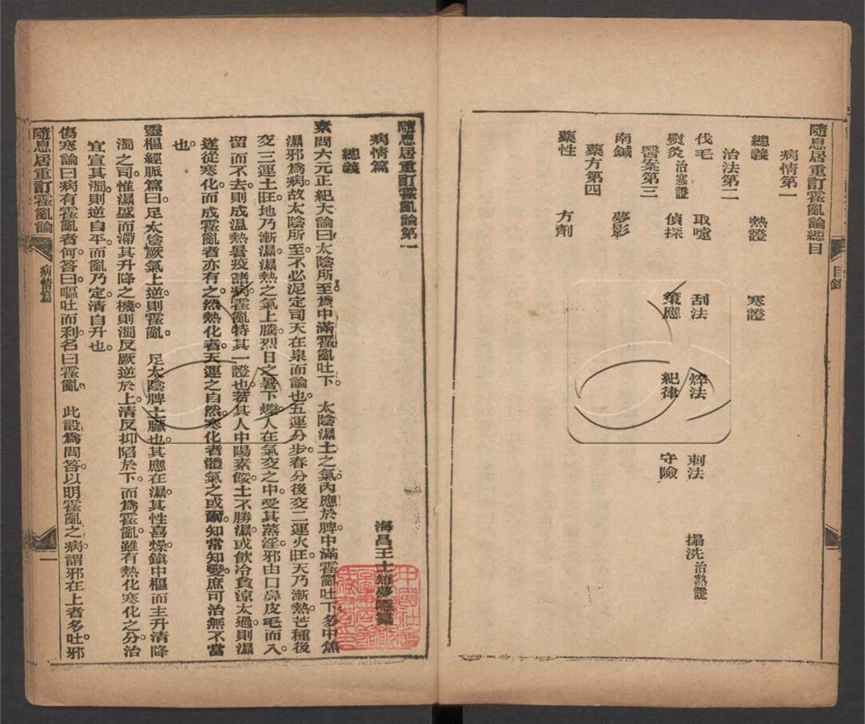 隨息居重訂霍亂論總目
病情第一
總義　熱證　寒證
治法第二
伐毛　取嚏　刮法　焠法　刺法　搨洗治熱證
熨灸治寒證　偵探　策應　紀律　守險
醫案第三
南鍼　夢影
藥方第四
藥性　方劑
目錄
隨息居重訂霍亂論第一
海昌王士雄夢隱纂
病情篇
總義
素問六元正紀大論曰太陰所至爲中滿霍亂吐下。　太陰濕土之氣內應於脾中滿霍亂吐下多中焦
濕邪爲病故太陰所至不必泥定司天在泉而論也五運分步春分後交二運火旺天乃漸熱芒種後
交三運土旺地乃漸濕濕熱之氣上騰烈日之暑下爍人在氣交之中受其蒸淫邪由口鼻皮毛而入
留而不去則成溫熱暑疫諸病霍亂特其一證也若其人中陽素餒土不勝濕或飲冷貪涼太過則濕
遂從寒化而成霍亂者亦有之然熱化者天運之自然寒化者體氣之或爾知常知變庶可治無不當
也。
靈樞經脈篇曰足太陰厥氣上逆則霍亂。　足太陰脾土臟也其應在濕其性喜燥鎮中樞而主升清降
濁之司惟濕盛而滯其升降之機則濁反厥逆於上清反抑陷於下而爲霍亂雖有熱化寒化之分治
宜宣其濁則逆自平而亂乃定清自升也。
傷寒論曰病有霍亂者何答曰嘔吐而利名曰霍亂　此設爲問答以明霍亂之病謂邪在上者多吐邪
隨息居重訂霍亂論
病情篇
一